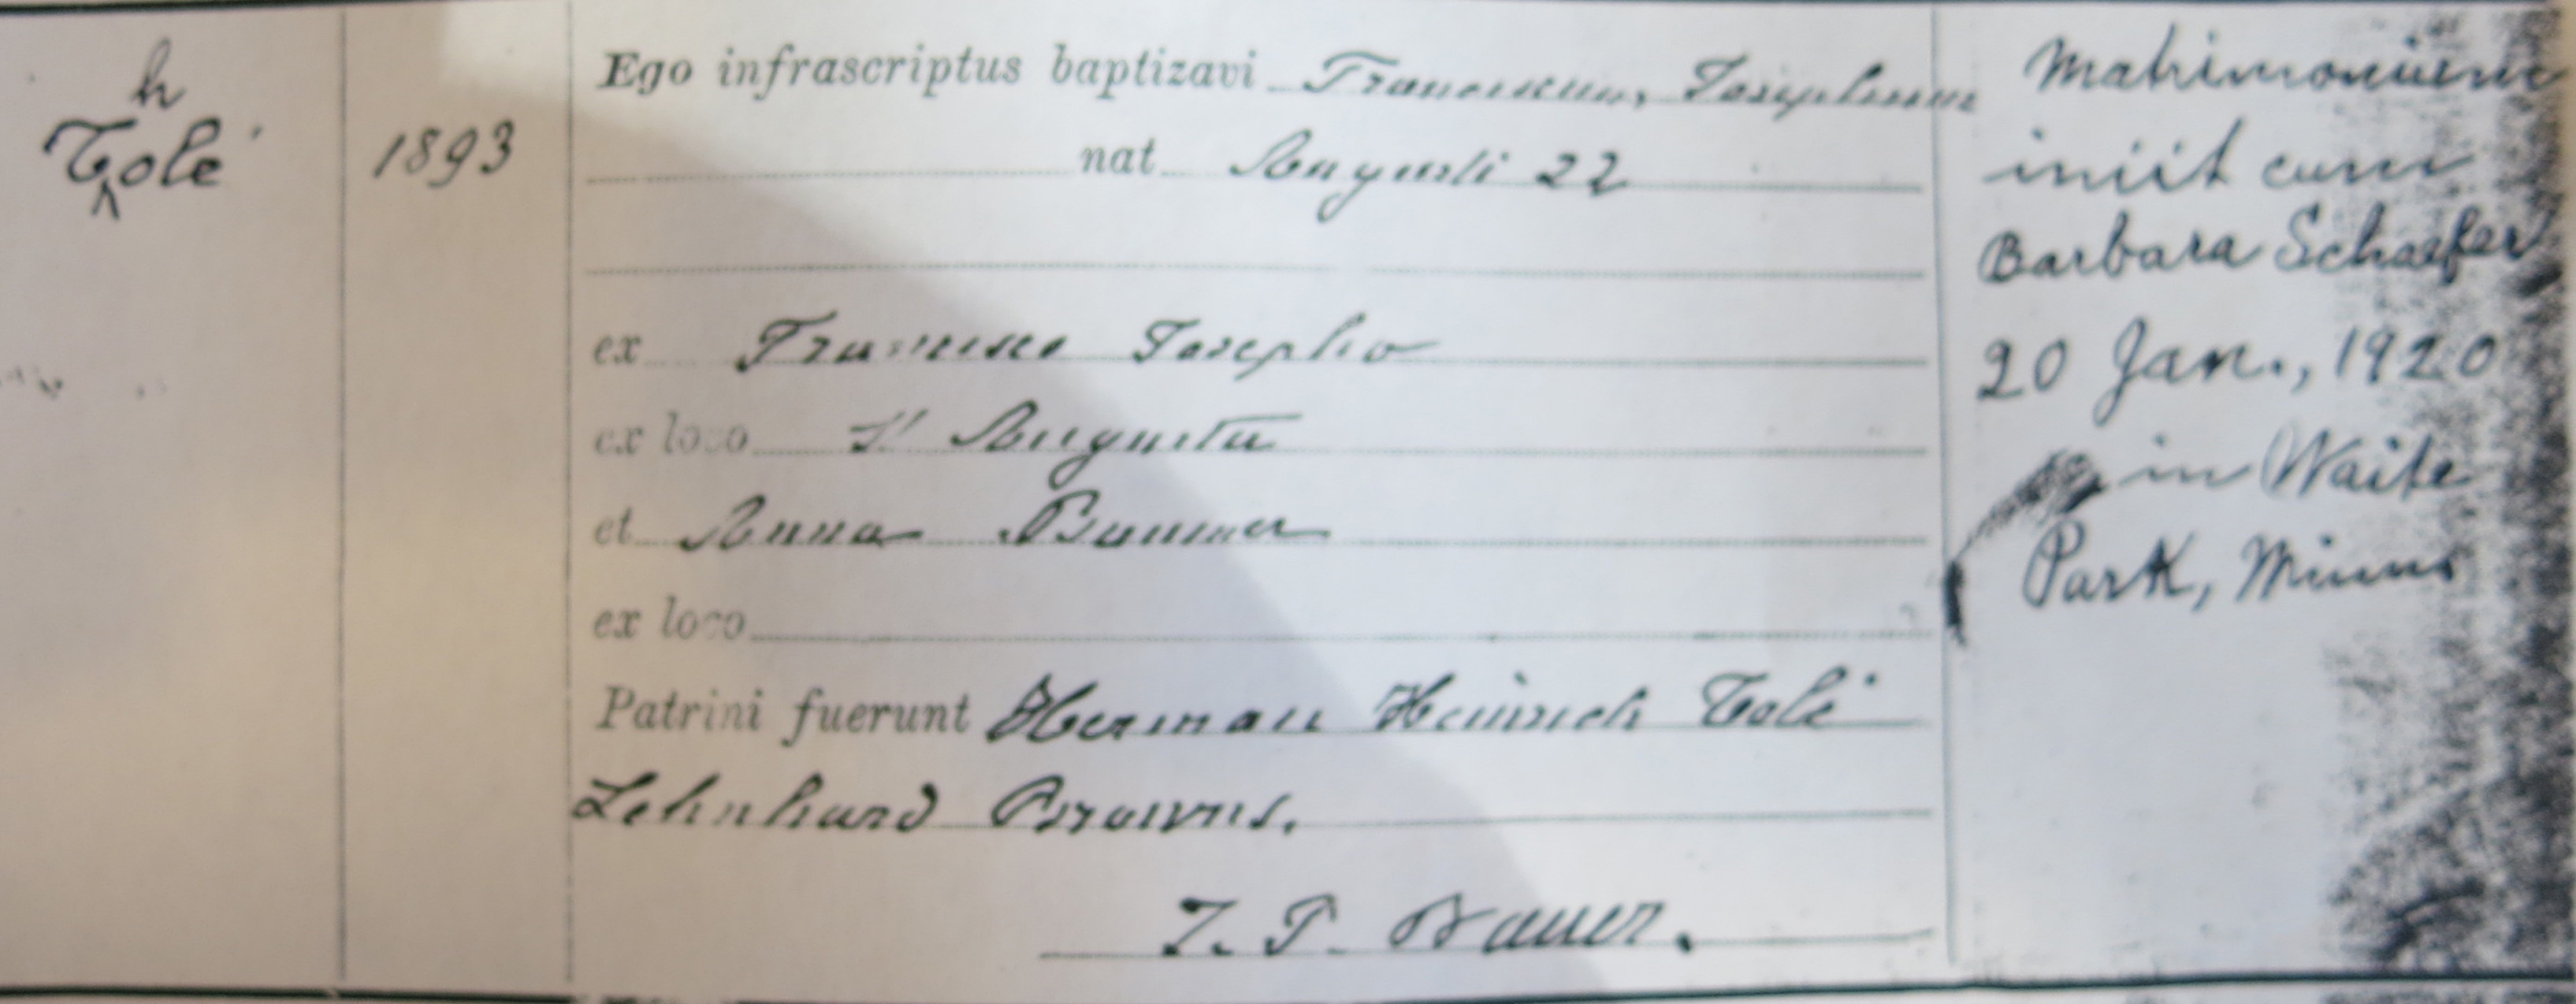 h
Tolé
1893
Ego infrascriptus baptizavi Franciscum, Josephum
nat Augusti 22
ex Francisco Josepho
ex loco St Augusta
et Anna
ex loco
Patrini fuerunt Herman Heinrich Tolé
Lehnhard
J. P. Bauer.
Matrimonium
iniit cum
Barbara Schaefer
20 Jan., 1920
in Waite
Park, Minn